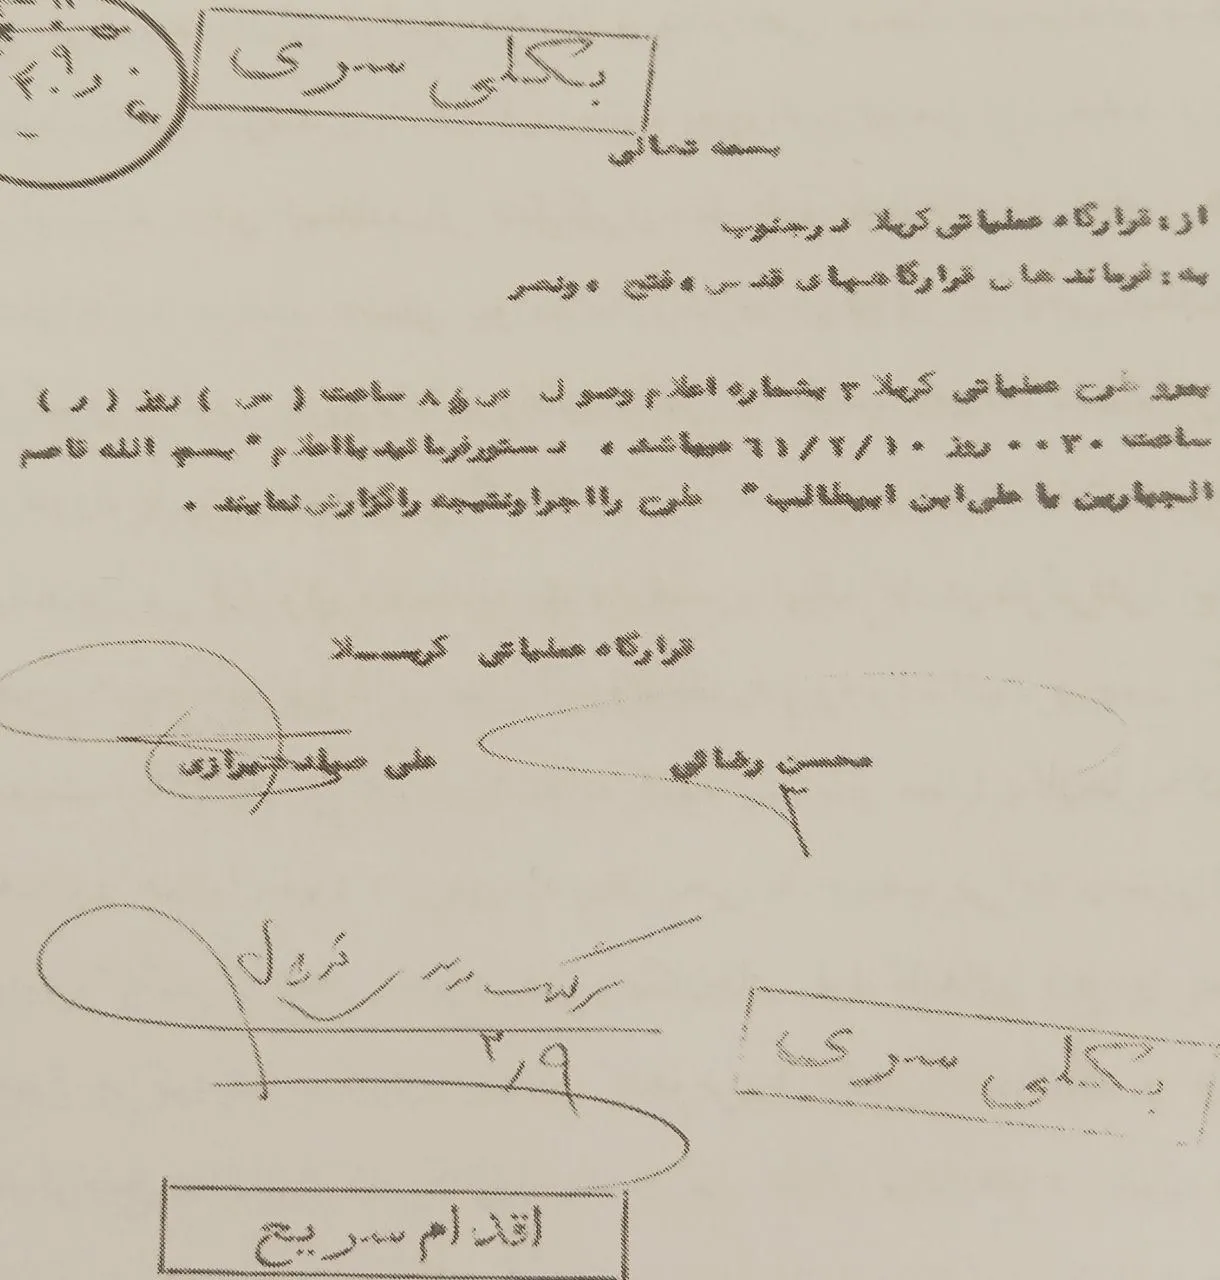 بکلی سری
بسمه تعالی
از: قرارگاه عملیاتی کربلا در جنوب
به: فرماندهان قرارگاههای قدس، فتح، ونصر
پیرو طرح عملیاتی کربلا ۳ بشماره اعلام وصول ساعت ( س ) روز ( ر )
ساعت ۰۰۳۰ روز ۶۱/۲/۱۰ میباشد. دستور فرمائید با اعلام "بسم الله قاصم
الجبارین یا علی ابن ابیطالب" طرح را اجرا و نتیجه را گزارش نمایند.
قرارگاه عملیاتی کربلا
محسن رضائی
علی صیاد شیرازی
۲٫۹
بکلی سری
اقدام سریع